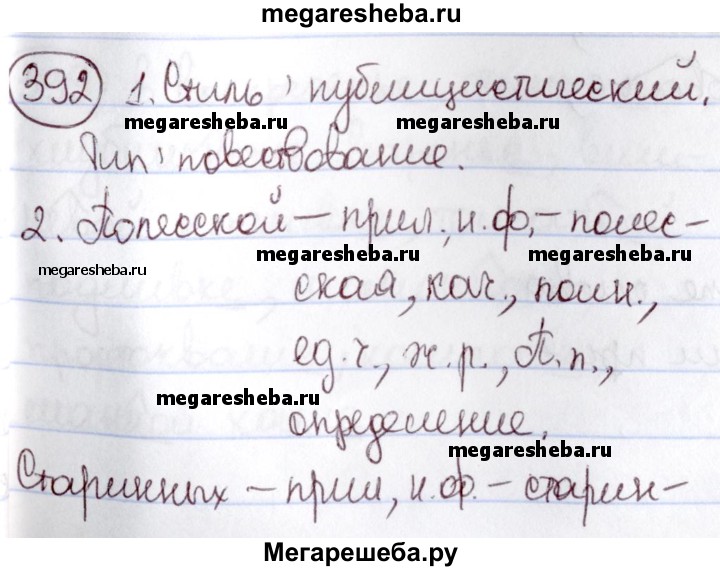 megaresheba.ru
392 1. Стиль: публицистический.
megaresheba.ru megaresheba.ru
Тип: повествование.
2. Полесской – прил., н.ф. – полес-
megaresheba.ru megaresheba.ru
ская, кач., полн.,
ед.ч., ж.р., П.п.,
megaresheba.ru
определение.
megaresheba.ru
Старинных – прил., н.ф. – старин-
Мегарешеба.ру